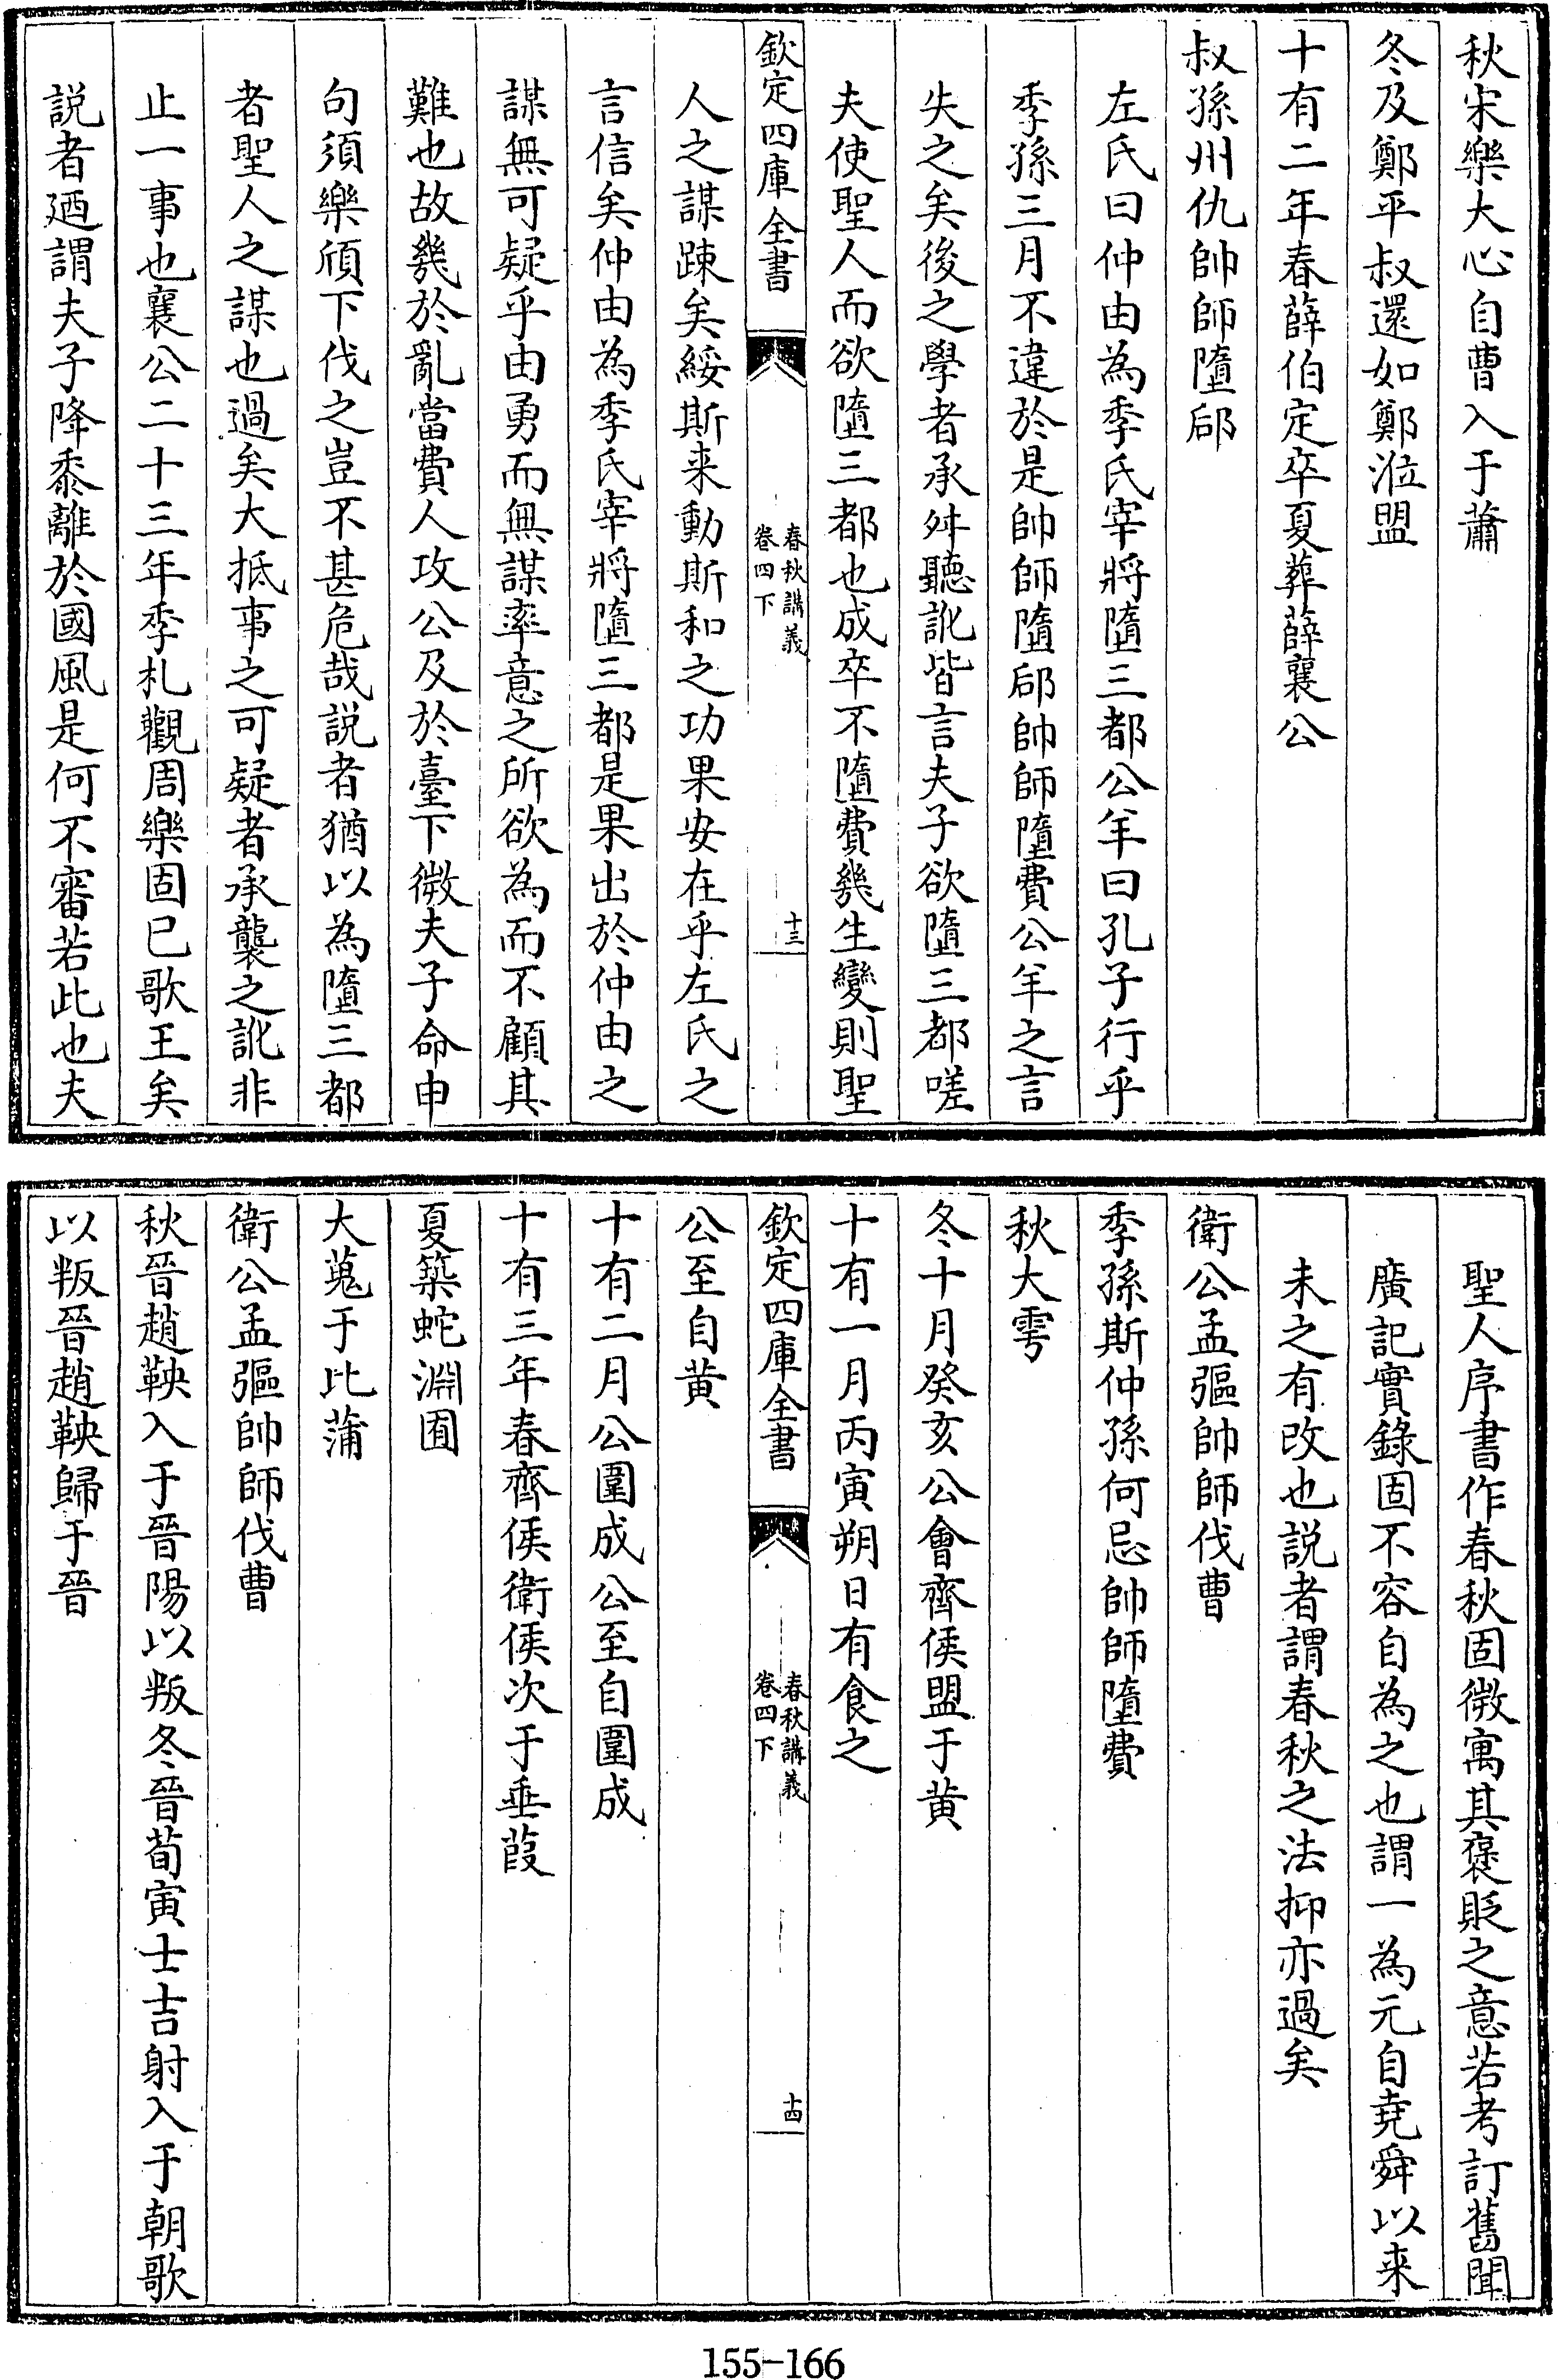 秋宋樂大心自曹入于蕭
冬及鄭平叔還如鄭涖盟
十有二年春薛伯定卒夏葬薛襄公
叔孫州仇帥師墮郈
左氏曰仲由為季氏宰將墮三都公羊曰孔子行乎
季孫三月不違於是帥師墮郈帥師墮費公羊之言
失之矣後之學者承舛聽訛皆言夫子欲墮三都嗟
夫使聖人而欲墮三都也成卒不墮費幾生變則聖
欽定四庫全書
春秋講義
卷四下
十三
人之謀踈矣綏斯来動斯和之功果安在乎左氏之
言信矣仲由為季氏宰將墮三都是果出於仲由之
謀無可疑乎由勇而無謀率意之所欲為而不顧其
難也故幾於亂當費人攻公及於臺下微夫子命申
句須樂頎下伐之豈不甚危哉説者猶以為墮三都
者聖人之謀也過矣大抵事之可疑者承襲之訛非
止一事也襄公二十三年季札觀周樂固已歌王矣
説者廼謂夫子降黍離於國風是何不審若此也夫
聖人序書作春秋固微寓其褒貶之意若考訂舊聞
廣記實錄固不容自為之也謂一為元自堯舜以来
未之有改也説者謂春秋之法抑亦過矣
衛公孟彄帥師伐曹
季孫斯仲孫何忌帥師墮費
秋大雩
冬十月癸亥公會齊侯盟于黄
十有一月丙寅朔日有食之
欽定四庫全書
春秋講義
卷四下
十四
公至自黄
十有二月公圍成公至自圍成
十有三年春齊侯衛侯次于垂葭
夏築蛇淵囿
大蒐于比蒲
衛公孟彄帥師伐曹
秋晉趙鞅入于晉陽以叛冬晉荀寅士吉射入于朝歌
以叛晉趙鞅歸于晉
155-166